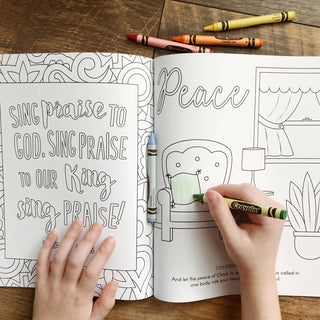 SING praise TO
GOD. SING PRAISE
TO OUR King
sing PRAISE!
Peace
And let the peace of Christ
called in
one body rule your
ful.
Crayola